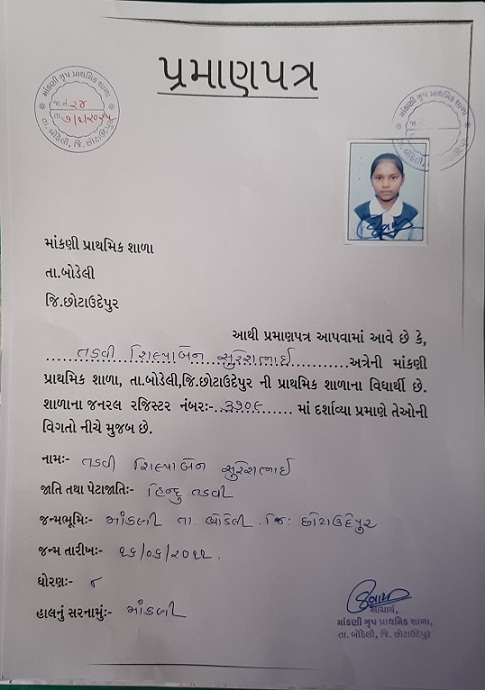 પ્રમાણપત્ર
માંકણી ગૃપ પ્રાથમિક શાળા
જા.નં. ૨૪
તા.
તા. બોડેલી, જિ. છોટાઉદેપુર
માંકણી ગૃપ પ્રાથમિક શાળા
જા.નં.
તા. બોડેલી, જિ.
માંકણી પ્રાથમિક શાળા
તા.બોડેલી
જિ.છોટાઉદેપુર
આથી પ્રમાણપત્ર આપવામાં આવે છે કે,
તડવી શિલ્પાબેન સુરેશભાઈ અત્રેની માંકણી
પ્રાથમિક શાળા, તા.બોડેલી,જિ.છોટાઉદેપુર ની પ્રાથમિક શાળાના વિદ્યાર્થી છે.
શાળાના જનરલ રજિસ્ટર નંબરઃ- ૩૧૦૯ માં દર્શાવ્યા પ્રમાણે તેઓની
વિગતો નીચે મુજબ છે.
નામઃ- તડવી શિલ્પાબેન સુરેશભાઈ
જાતિ તથા પેટાજાતિઃ- હિન્દુ તડવી
જન્મભૂમિઃ- માંકણી તા. બોડેલી જિ: છોટાઉદેપુર
જન્મ તારીખઃ- ૧૬/૦૬/૨૦૧૧
ધોરણઃ- ૮
હાલનું સરનામુંઃ- માંકણી
આચાર્ય,
માંકણી ગૃપ પ્રાથમિક શાળા,
તા. બોડેલી, જિ. છોટાઉદેપુર